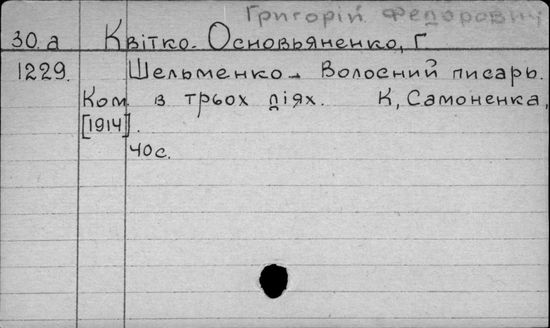 Григорій Федорович
30.а Квітко-Основьяненко, Г
1229. Шельменко - Волосний писарь.
Ком. в трьох діях. К, Самоненка,
[1914].
40с.